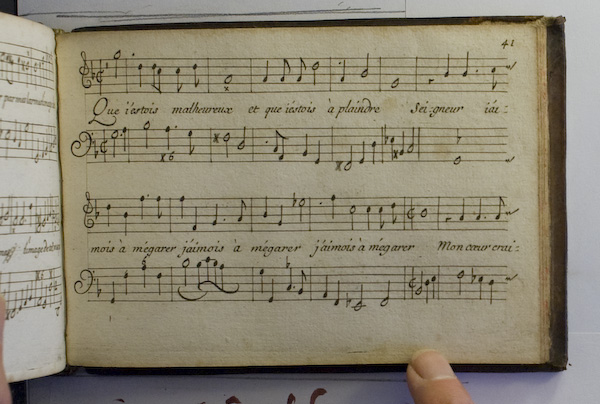 41
Que i'estois malheureux et que i'estois à plaindre Sei:gneur iái:
mois à mégarer j'aimois à mégarer j'aimois à mégarer Mon cœur crai: